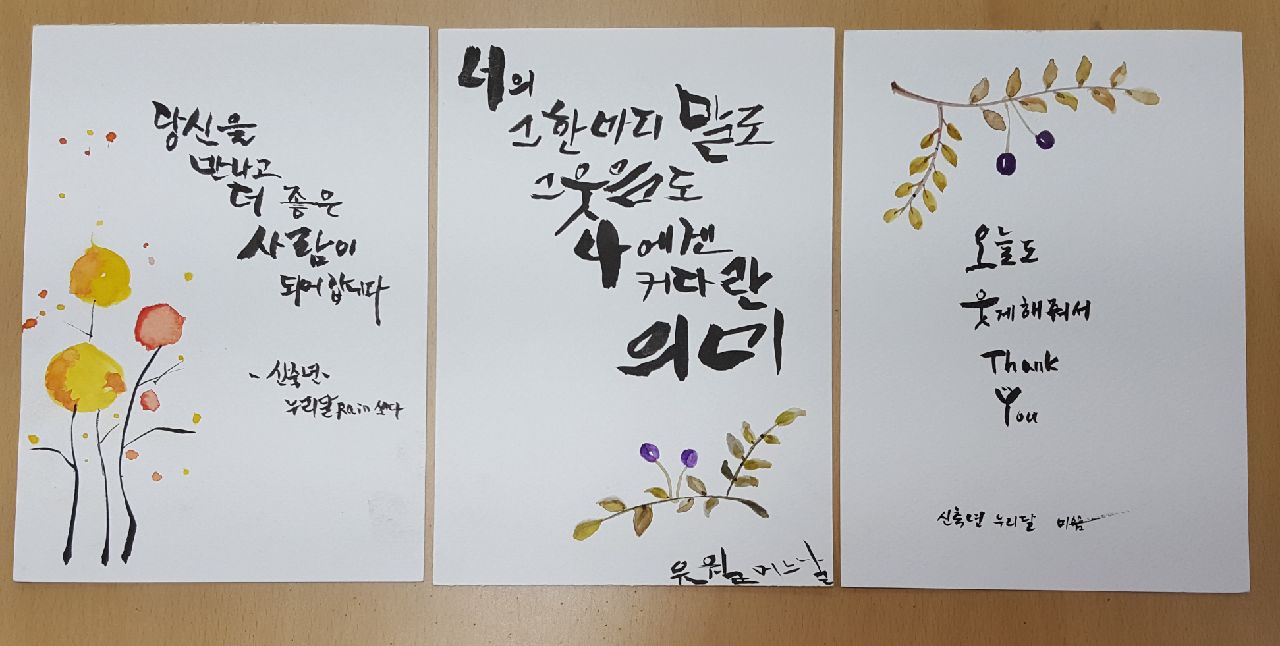 당신을
만나고
더 좋은
사람이
되어 갑니다
- 신축년 -
누리달 Rain 쓰다
너의
그 한 마디 말로
그 웃음도
나에겐
커다란
의미
오늘도
웃게 해줘서
Thank
You
신축년 누리달